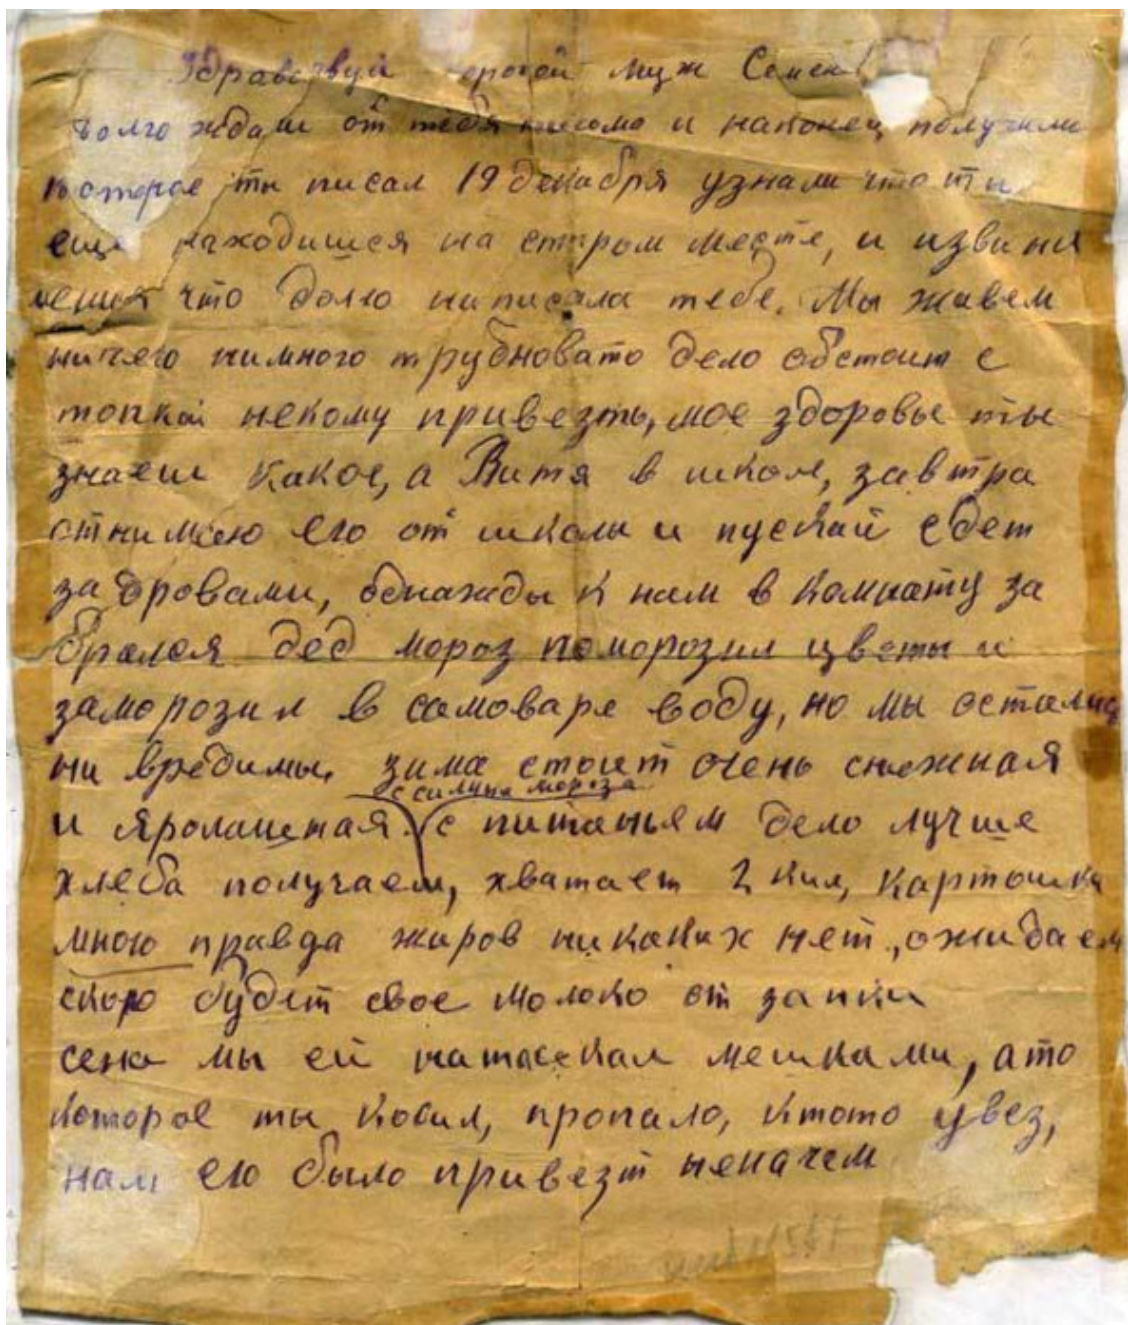 Здравствуй дорогой муж Семен
долго ждали от тебя писома и наконец получили
которое ты писал 19 декабря узнали что ты
еще находишся на старом месте, и извени
меня что долго ниписала тебе. Мы живем
ничего нимного трудновато дело обстоит с
топкой некому привезть, мое здоровье ты
знаеш какое, а Витя в школе, завтра
отнимаю его от школы и пускай едет
за дровами, однажды к нам в комнату за
брался дед мороз поморозил цветы и
заморозил в самоваре воду, но мы остались
ни вредимы. зима стоит очень снежная
с силнуе мороза
и с питаньем дело лучше
хлеба получаем, хватает 2 кил, картошки
много правда жиров никаких нет, ожидаем
скоро будит свое молоко от
сена мы ей натаскали мешками, а то
которое ты косил, пропало, ктото увез,
нам его было привезт неначем